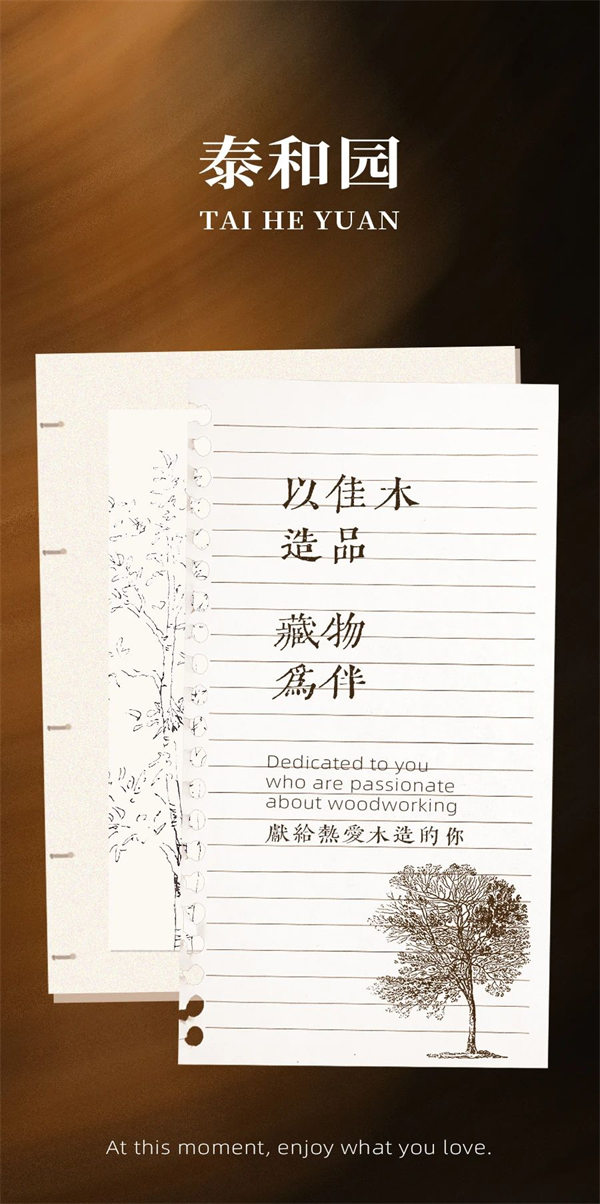 泰和园
TAI HE YUAN
以佳木
造品
藏物
爲伴
Dedicated to you
who are passionate
about woodworking
獻給熱愛木造的你
At this moment, enjoy what you love.